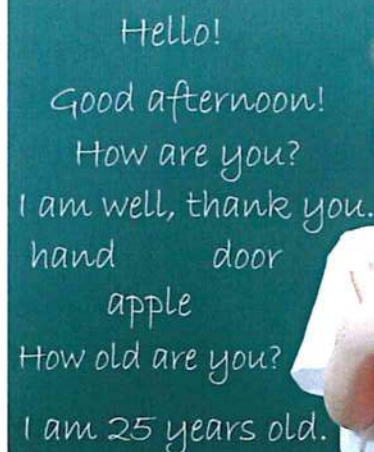 Hello!
Good afternoon!
How are you?
I am well, thank you.
hand door
apple
How old are you?
I am 25 years old.